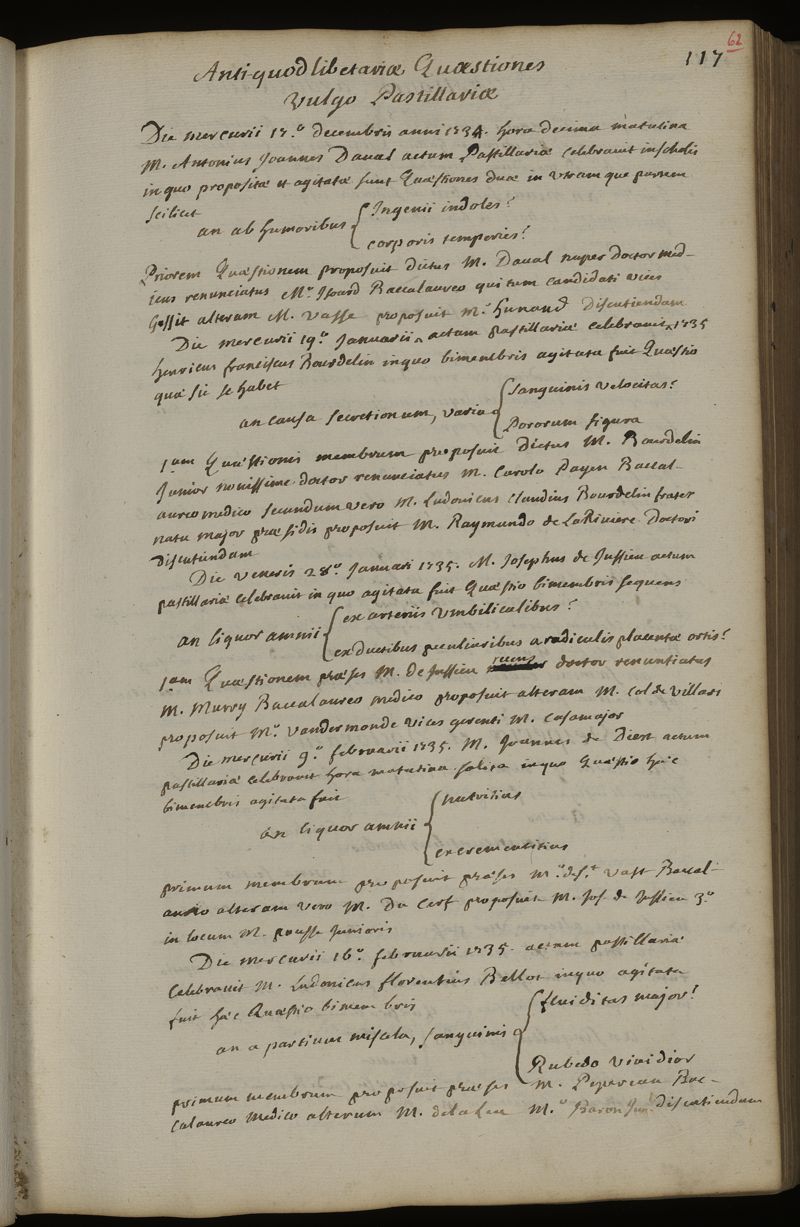 62
117
Antiquodlibetariæ Quæstiones
vulgo Pastillariæ
Die mercurii 15.º decembris anni 1734. hora decima matutina
M. Antonius Joannes Daval actum Pastillariæ celebravit in scholis
in quo propositæ et agitatæ sunt Quæstiones duæ in utramque partem
scilicet
an ab humoribus { Ingenii indoles?
corporis temperies?
Priorem Quæstionem proposuit dictus M. Daval nuper doctor med-
icus renunciatus Mº. Isoard Baccalaureo qui tum candidati vices
Gessit alteram M. Vasse proposuit Mº. hunand Discutiendam
Die mercurii 19.º Januarii ^ actum pastillariæ celebravit ^ 1735
henricus franciscus Bourdelin in quo bimembris agitata fuit Quæstio
quæ sic se habet
an causa secretionum, varia { sanguinis velocitas?
Pororum figura
1am Quæstionis membrum proposuit Dictus M. Bourdelin
Junior novissime doctor renunciatus M. Carolo Payen Baccal-
aureo medico secundum vero M. Ludovicus Claudius Bourdelin frater
natu major præsidis proposuit M. Raymundo de La Riviere Doctori
discutiendam
Die veneris 28º. Januari 1735. M. Josephus de Jussieu actum
pastillariæ celebravit in quo agitata fuit Quæstio bimembris sequens
an liquor amnii { ex arteriis umbilicalibus?
ex ductibus peculiaribus a radiculis placentæ ortis?
1am Quæstionem præses M. de Jussieu recens doctor renuntiatus
M. Murry Baccalaureo medico proposuit alteram M. Col de Villars
proposuit Mº. Vandermonde vices gerenti M. Casamajor
Die mercurii 9.º februarii 1735. M. Joannes de Diest actum
pastillariæ celebravit hora matutina solita in quo Quæstio hæc
bimembris agitata fuit
an liquor amnii { nutritius
excrementitius
primum membrum proposuit præses Mº. de St. Vast Baccal-
aureo alteram vero M. Du Cerf proposuit M. Jos. de Jussieu 3.º
in locum M. pousse Junioris
Die mercurii 16º. februarii 1735. actum pastillariæ
Celebravit M. Ludovicus florentius Bellot in quo agitata
fuit hæc Quæstio bimembris
an a partium miscela, sanguinis { fluiditas major?
Rubedo vividior
primum membrum proposuit præses M. Bac-
calaureo Medico alterum M. Mº. Baron Jun. discutiendum